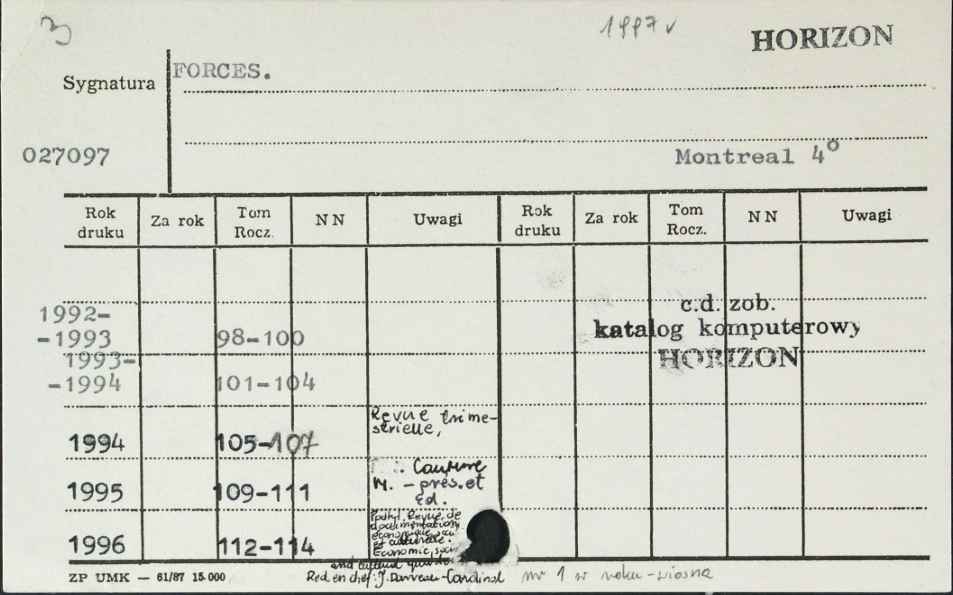 3
1997 v
HORIZON
Sygnatura
FORCES.
027097
Montreal 4°
Rok druku
Za rok
Tom Rocz.
N N
Uwagi
Rok druku
Za rok
Tom Rocz.
N N
Uwagi
1992-
-1993
98-100
1993-
-1994
101-104
1994
105-107
Revue trime-
strielle,
1995
109-111
M. - prés. et
éd.
1996
112-114
Revue de
documentation
économique,
et culturelle.
Economic,
and cultural
c.d. zob.
katalog komputerowy
HORIZON
ZP UMK — 61/87 15.000
Red. en chef: J.
nr 1 w roku - wiosna